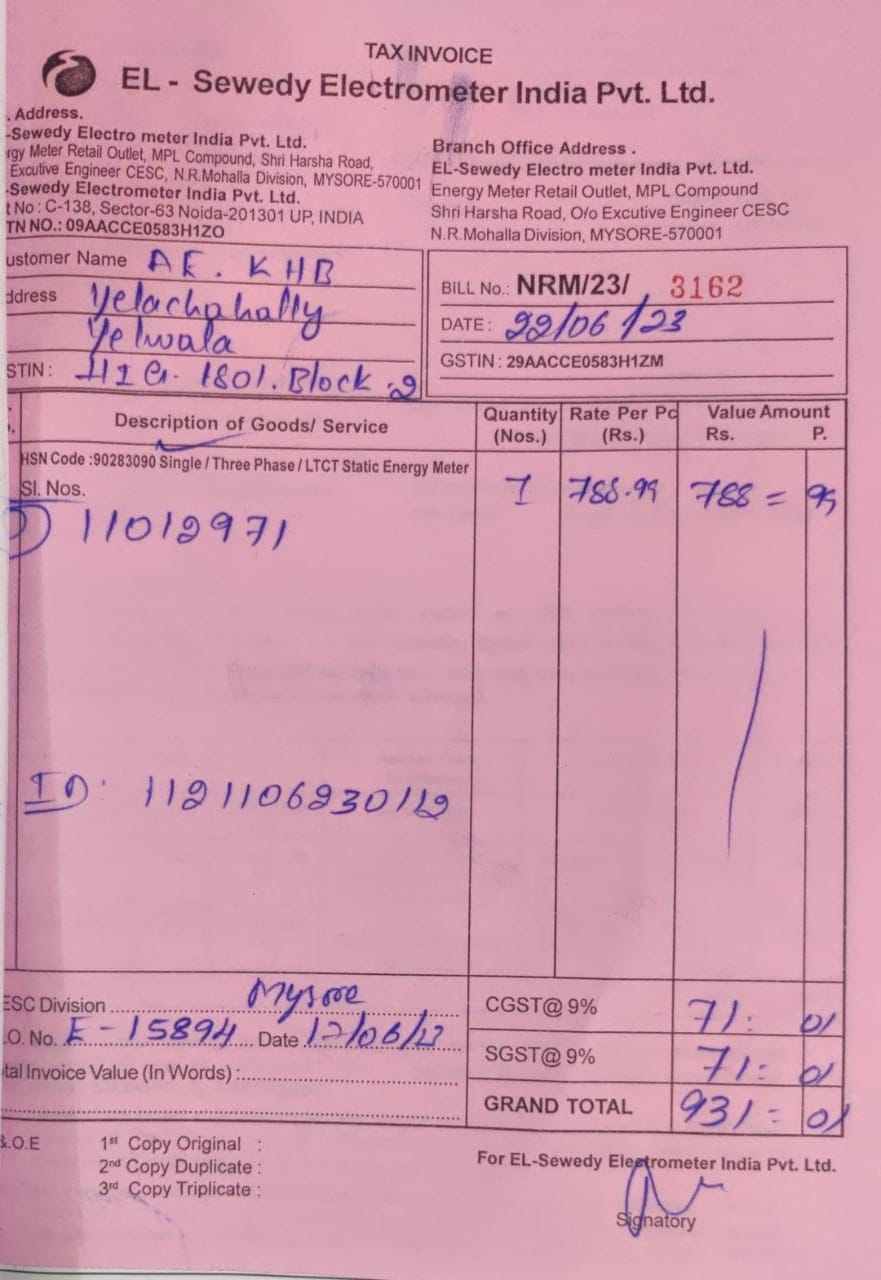 TAX INVOICE
EL - Sewedy Electrometer India Pvt. Ltd.
. Address.
-Sewedy Electro meter India Pvt. Ltd.
rgy Meter Retail Outlet, MPL Compound, Shri Harsha Road,
Excutive Engineer CESC, N.R.Mohalla Division, MYSORE-570001
-Sewedy Electrometer India Pvt. Ltd.
t No : C-138, Sector-63 Noida-201301 UP, INDIA
TN NO.: 09AACCE0583H1ZO
Branch Office Address .
EL-Sewedy Electro meter India Pvt. Ltd.
Energy Meter Retail Outlet, MPL Compound
Shri Harsha Road, O/o Excutive Engineer CESC
N.R.Mohalla Division, MYSORE-570001
ustomer Name AE. KHB
ddress Yelachahally
Yelwala
STIN : HIG. 1801. Block .2
BILL No.: NRM/23/ 3162
DATE : 22/06/23
GSTIN : 29AACCE0583H1ZM
Description of Goods/ Service Quantity (Nos.) Rate Per Pc (Rs.) Value Amount Rs. P.
HSN Code :90283090 Single / Three Phase / LTCT Static Energy Meter
Sl. Nos. 1 788.99 788 = 99
1) 11012971
ID: 1121106230112
ESC Division Mysore
.O. No. E-15894 Date 17/06/23
tal Invoice Value (In Words) :
CGST@ 9% 71: 01
SGST@ 9% 71: 01
GRAND TOTAL 931= 01
&.O.E
1st Copy Original :
2nd Copy Duplicate :
3rd Copy Triplicate :
For EL-Sewedy Electrometer India Pvt. Ltd.
Signatory